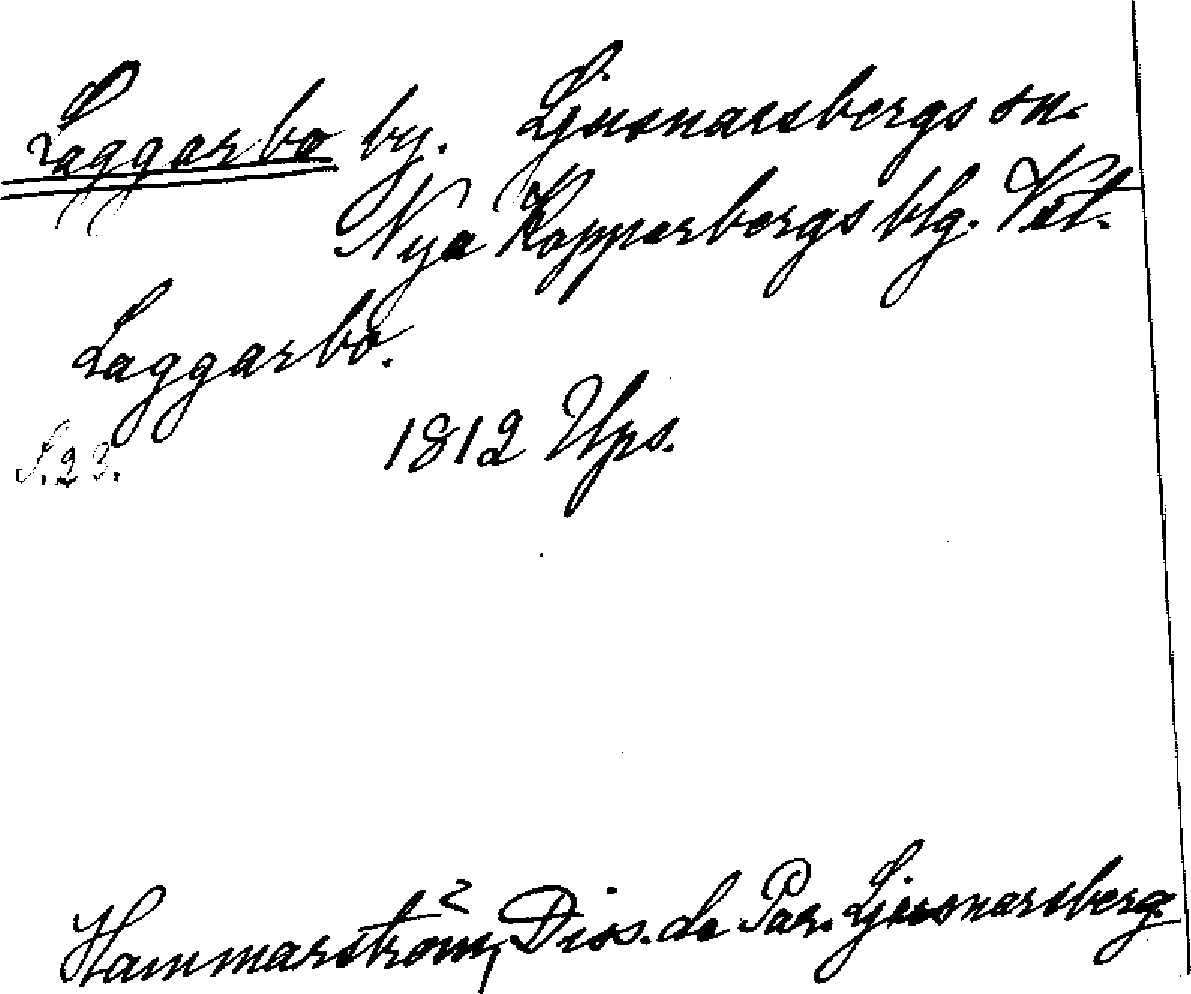 Laggarbo by. Ljusnarsbergs sn.
Nya Kopparbergs blg. Vstl.
Laggarbo.
S. 23. 1812 Ups.
Hammarström, Diss. de Par. Ljusnarsberg.